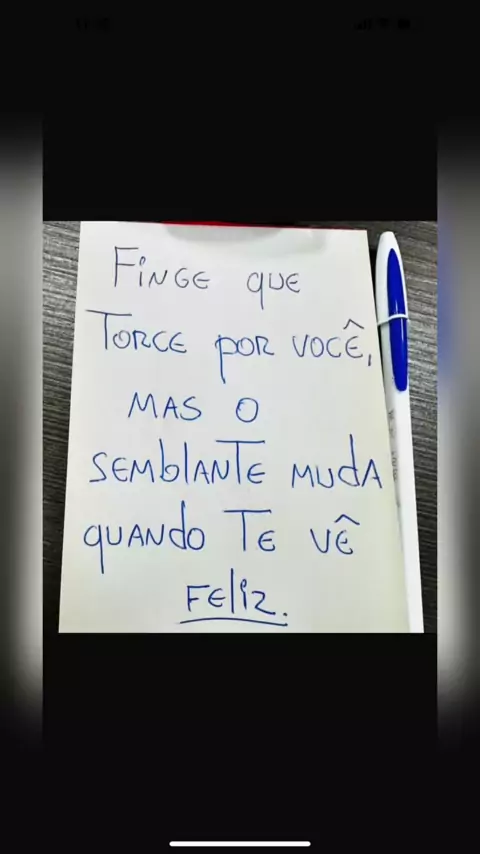 Finge que
torce por você,
mas o
semblante muda
quando te vê
feliz.